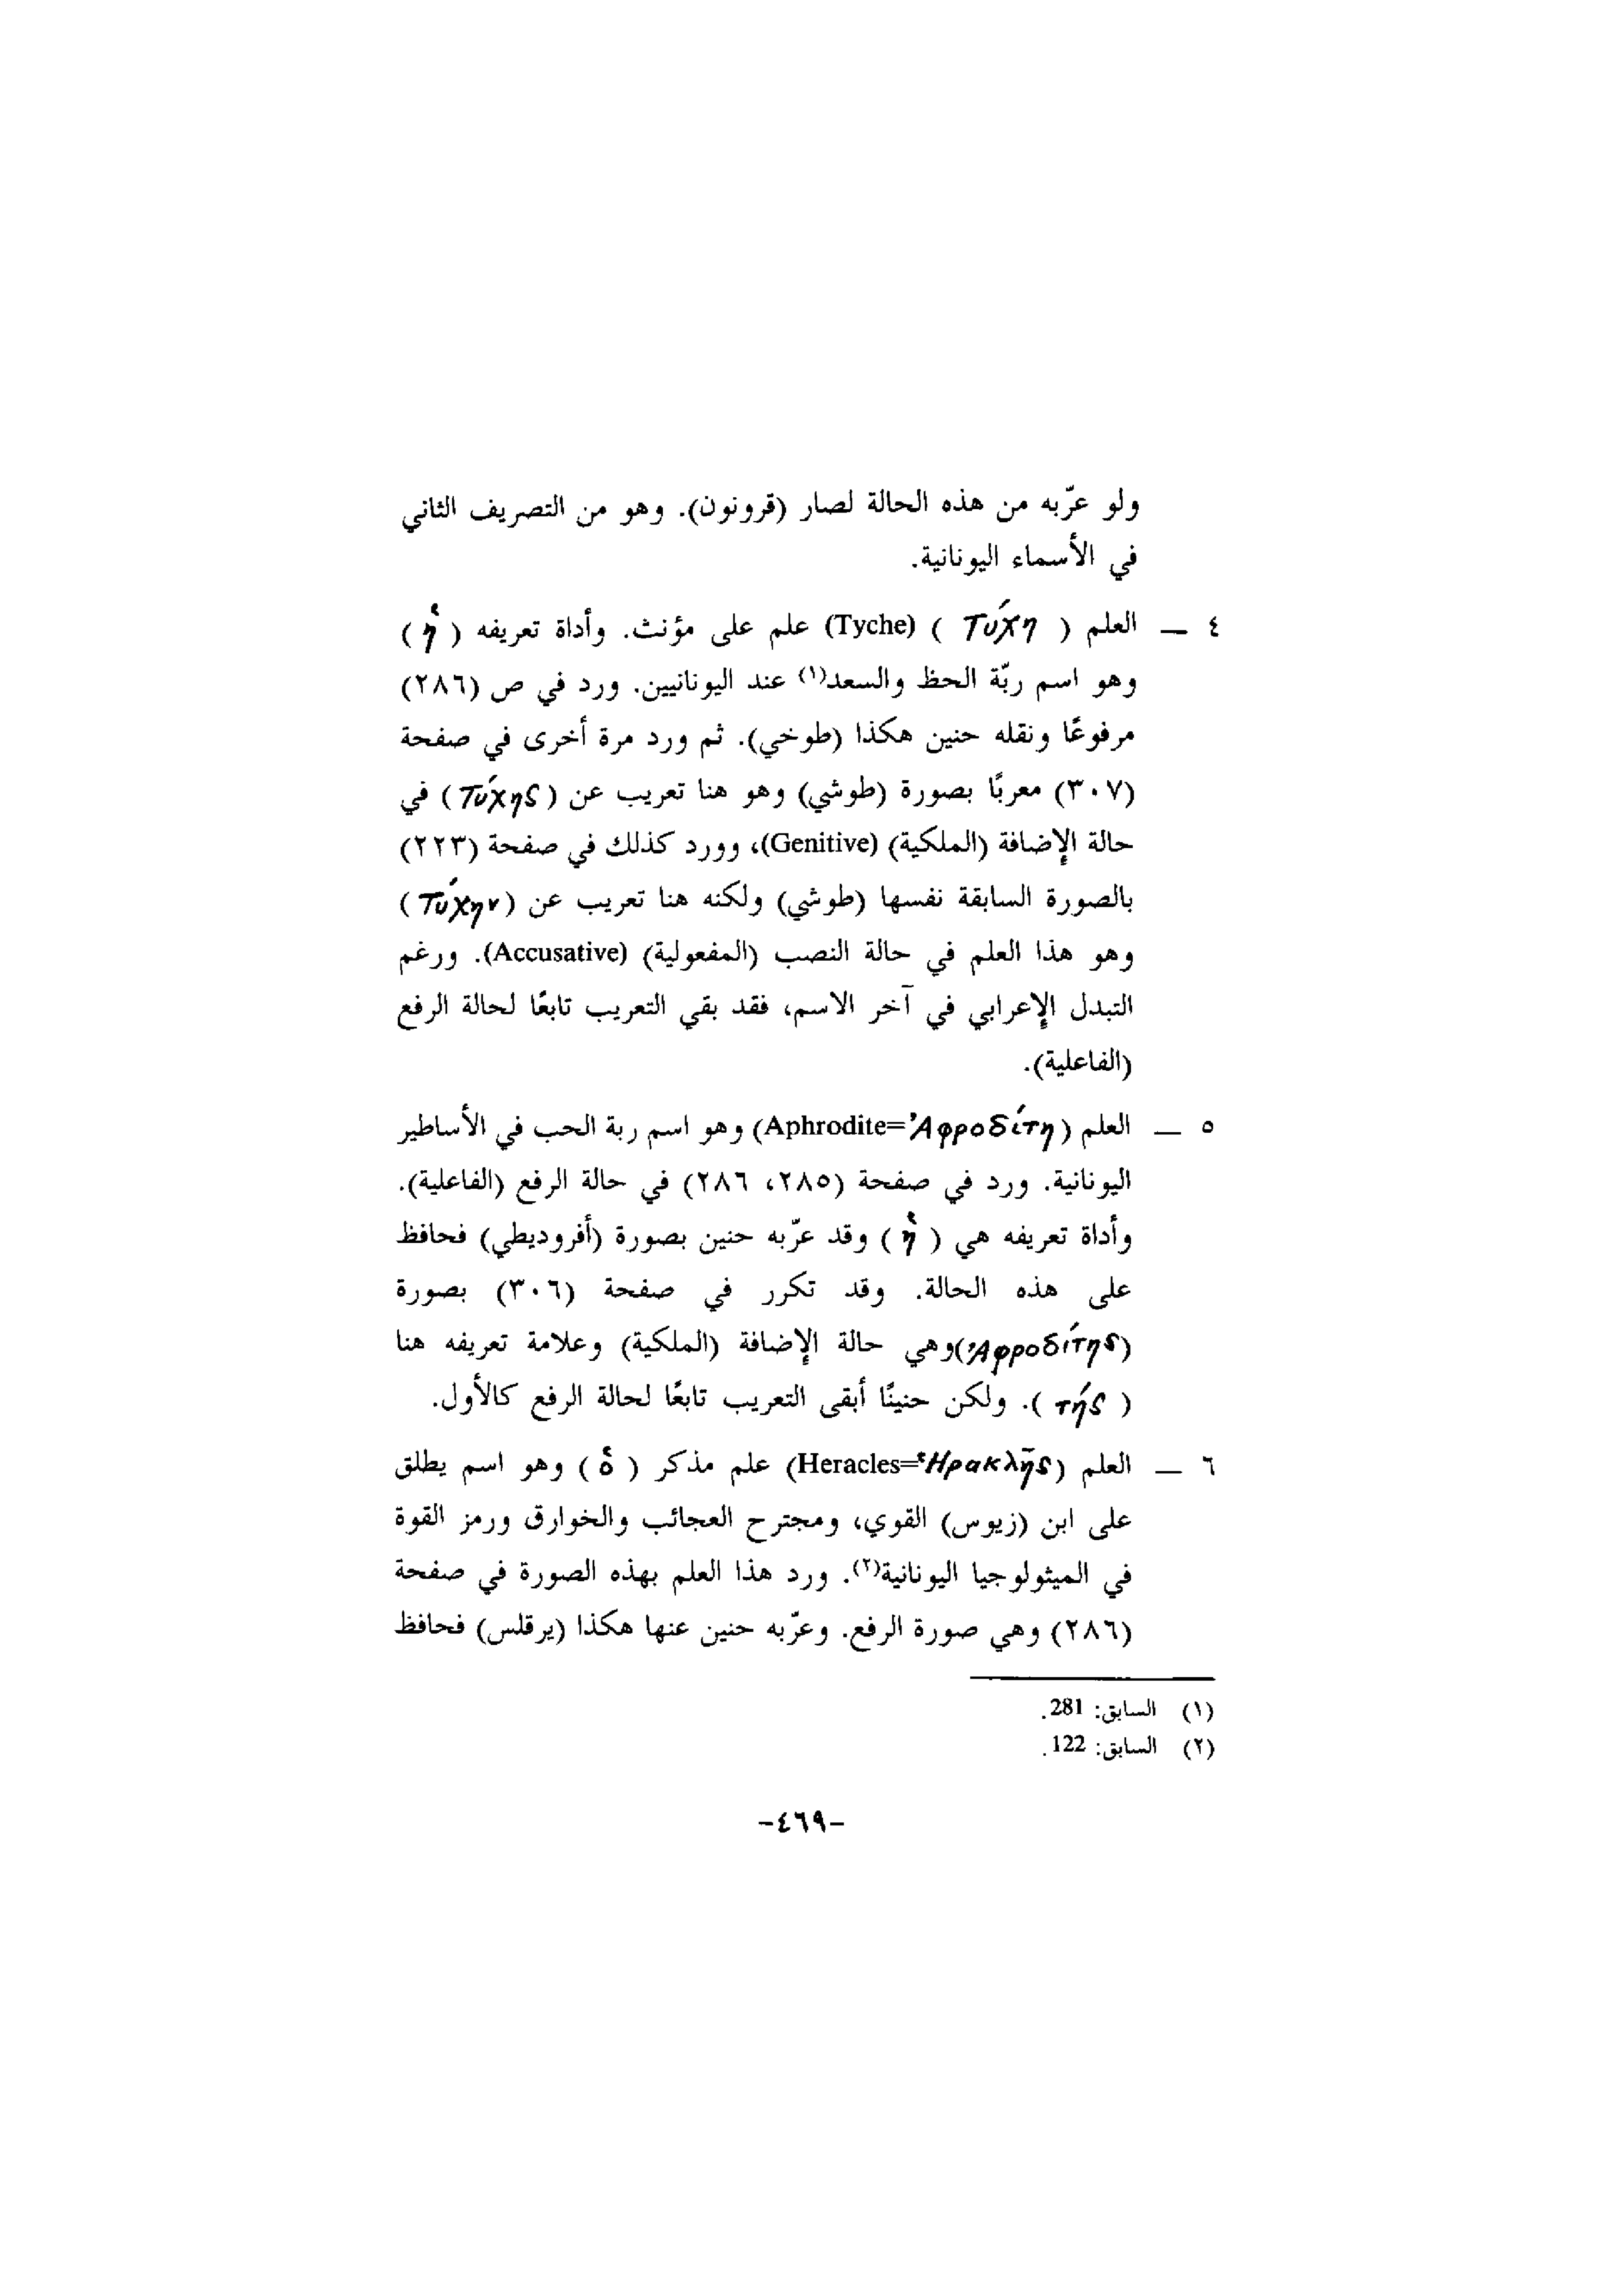 ولو عرّبه من هذه الحالة لصار (قرونون). وهو من التصريف الثاني
في الأسماء اليونانية.
٤ — العلم ( Τύχη ) (Tyche) علم على مؤنث. وأداة تعريفه ( ἡ )
وهو اسم ربّة الحظ والسعد(١) عند اليونانيين. ورد في ص (٢٨٦)
مرفوعًا ونقله حنين هكذا (طوخي). ثم ورد مرة أخرى في صفحة
(٣٠٧) معربًا بصورة (طوشي) وهو هنا تعريب عن (Τύχης) في
حالة الإضافة (الملكية) (Genitive)، وورد كذلك في صفحة (٢٢٣)
بالصورة السابقة نفسها (طوشي) ولكنه هنا تعريب عن (Τύχην)
وهو هذا العلم في حالة النصب (المفعولية) (Accusative). ورغم
التبدل الإعرابي في آخر الاسم، فقد بقي التعريب تابعًا لحالة الرفع
(الفاعلية).
٥ — العلم (Aphrodite=Ἀφροδίτη) وهو اسم ربة الحب في الأساطير
اليونانية. ورد في صفحة (٢٨٥، ٢٨٦) في حالة الرفع (الفاعلية).
وأداة تعريفه هي ( ἡ ) وقد عرّبه حنين بصورة (أفروديطي) فحافظ
على هذه الحالة. وقد تكرر في صفحة (٣٠٦) بصورة
(Ἀφροδίτης)وهي حالة الإضافة (الملكية) وعلامة تعريفه هنا
( τής ). ولكن حنينًا أبقى التعريب تابعًا لحالة الرفع كالأول.
٦ — العلم (Heracles=Ἡρακλῆς) علم مذكر ( ὁ ) وهو اسم يطلق
على ابن (زيوس) القوي، ومجترح العجائب والخوارق ورمز القوة
في الميثولوجيا اليونانية(٢). ورد هذا العلم بهذه الصورة في صفحة
(٢٨٦) وهي صورة الرفع. وعرّبه حنين عنها هكذا (يرقلس) فحافظ
(١) السابق: 281.
(٢) السابق: 122.
-٤٦٩-